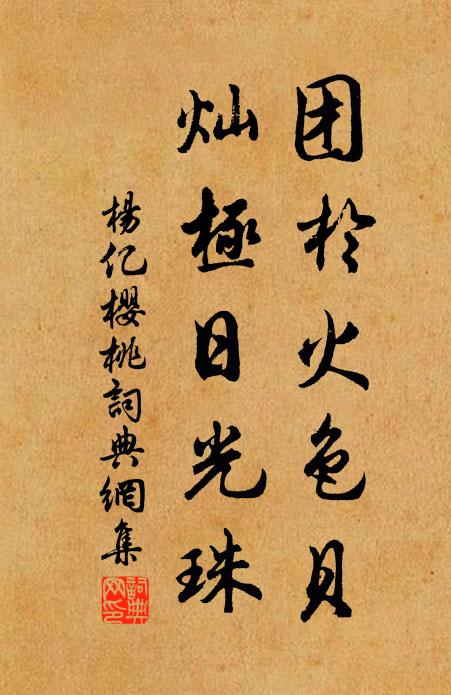 团於火色貝
灿極日光珠
楊亿櫻桃詞典網集
詞典網印